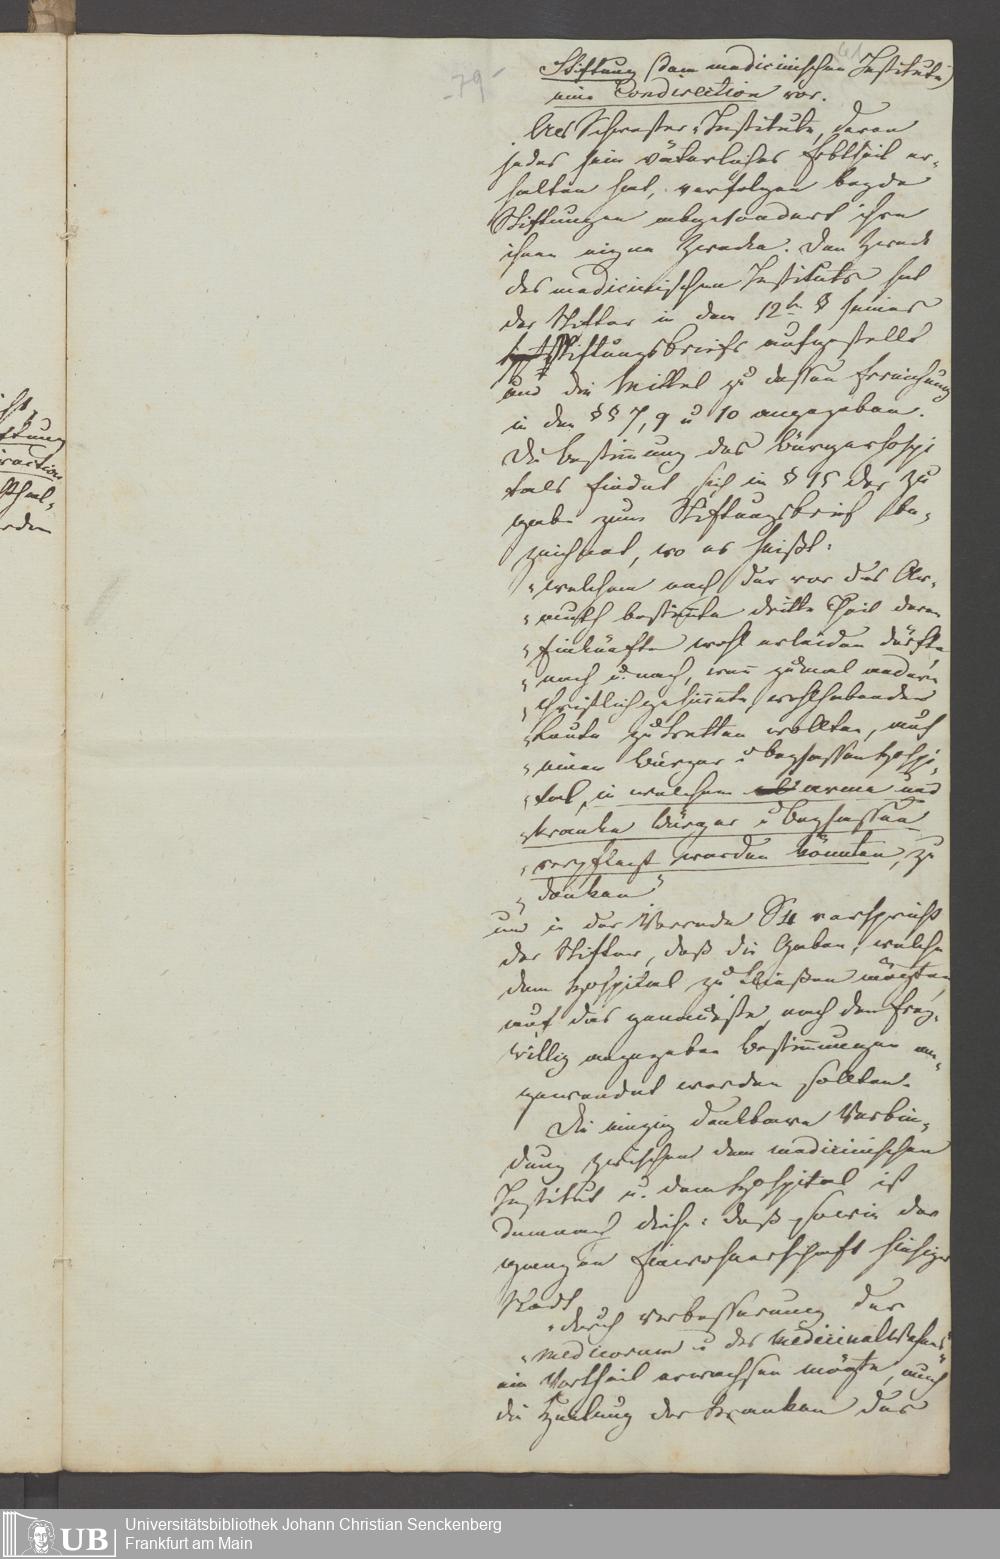 -79-
61
Stiftung (dem medicinischen Institute)
eine Condirection vor.
Als Schwester-Institute, deren
jedes sein väterliches Erbtheil er-
halten hat, verfolgen beyde
Stiftungen abgesondert ihre
ihnen eignen Zwecke. Den Zweck
des medicinischen Instituts hat
der Stifter in dem 12tn § seines
Stiftungsbriefs aufgestellt
und die Mittel zu dessen Erreichung
in den §§ 7, 9 u 10 angegeben.
Die Bestim̄ung des Bürgerhospi
tals findet sich in § 15 der Zu
gabe zum Stiftungsbrief be-
zeichnet, wo es heißt:
"welchem nach der vor das Ar-
"muth bestim̄te dritte Theil deren
"Einkünfte wohl erleiden dürfte,
"nach u. nach, wan̄ zumal andere
"christlichgesin̄nte, wohlhabende
"Leute zutretten wollten, auf
"einen Bürger u Beysassen Hospi-
"tal, in welchem arme und
"kranke Bürger u Beysassen
"verpflegt werden könnten, zu
"denken"
und in der Vorrede § 4 verspricht
der Stifter, daß die Gaben, welche
dem Hospital zu fließen mögten,
auf das genaueste, nach den frey-
willig angegeben Bestim̄ungen an-
gewendet werden sollten.
Die einzig denkbare Verbin-
dung zwischen dem medicinischen
Institut u. dem Hospital ist
demnach diese: daß, sowie der
ganzen Einwohnerschaft hiesiger
Stadt
"durch Verbesserung der
"Medicorum u des Medicinal Wesens"
ein Vortheil erwachsen mögte, auch
die Heilung der Kranken des
ht,
ftung
irection
Thal-
rden
Universitätsbibliothek Johann Christian Senckenberg
Frankfurt am Main
UB